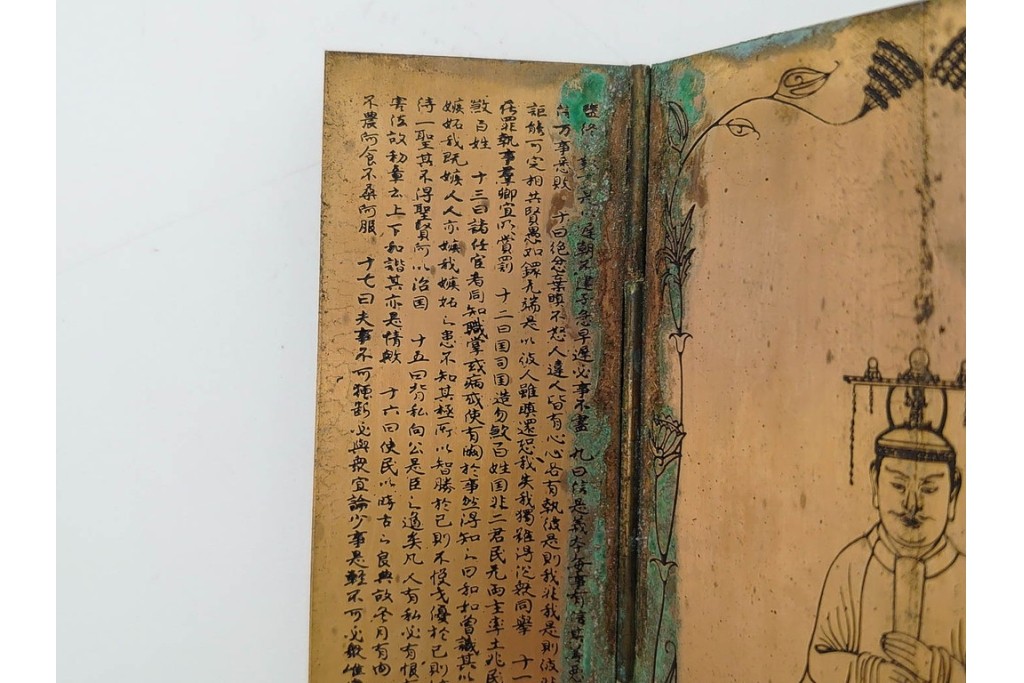 是以遲朝不逮于急早退必事不盡 九曰信是義本每事有信其善惡
万事悉敗 十曰絶忿棄瞋不怒人違人皆有心心各有執彼是則我非我是則彼非
詎能可定相共賢愚如鐶无端是以彼人雖瞋還恐我失我獨雖得從衆同擧 十一
罪執事羣卿宜明賞罰 十二曰国司国造勿斂百姓国非二君民无兩主率土兆民
斂百姓 十三曰諸任官者同知職掌或病或使有闕於事然得知之曰和如曾識其以
嫉妬我既嫉人人亦嫉我嫉妬之患不知其極所以智勝於己則不悦才優於己則
待一聖其不得聖賢何以治国 十五曰背私向公是臣之道矣凡人有私必有恨
害法故初章云上下和諧其亦是情歟 十六曰使民以時古之良典故冬月有間
不農何食不桑何服 十七曰夫事不可獨断必與衆宜論少事是輕不可必衆惟